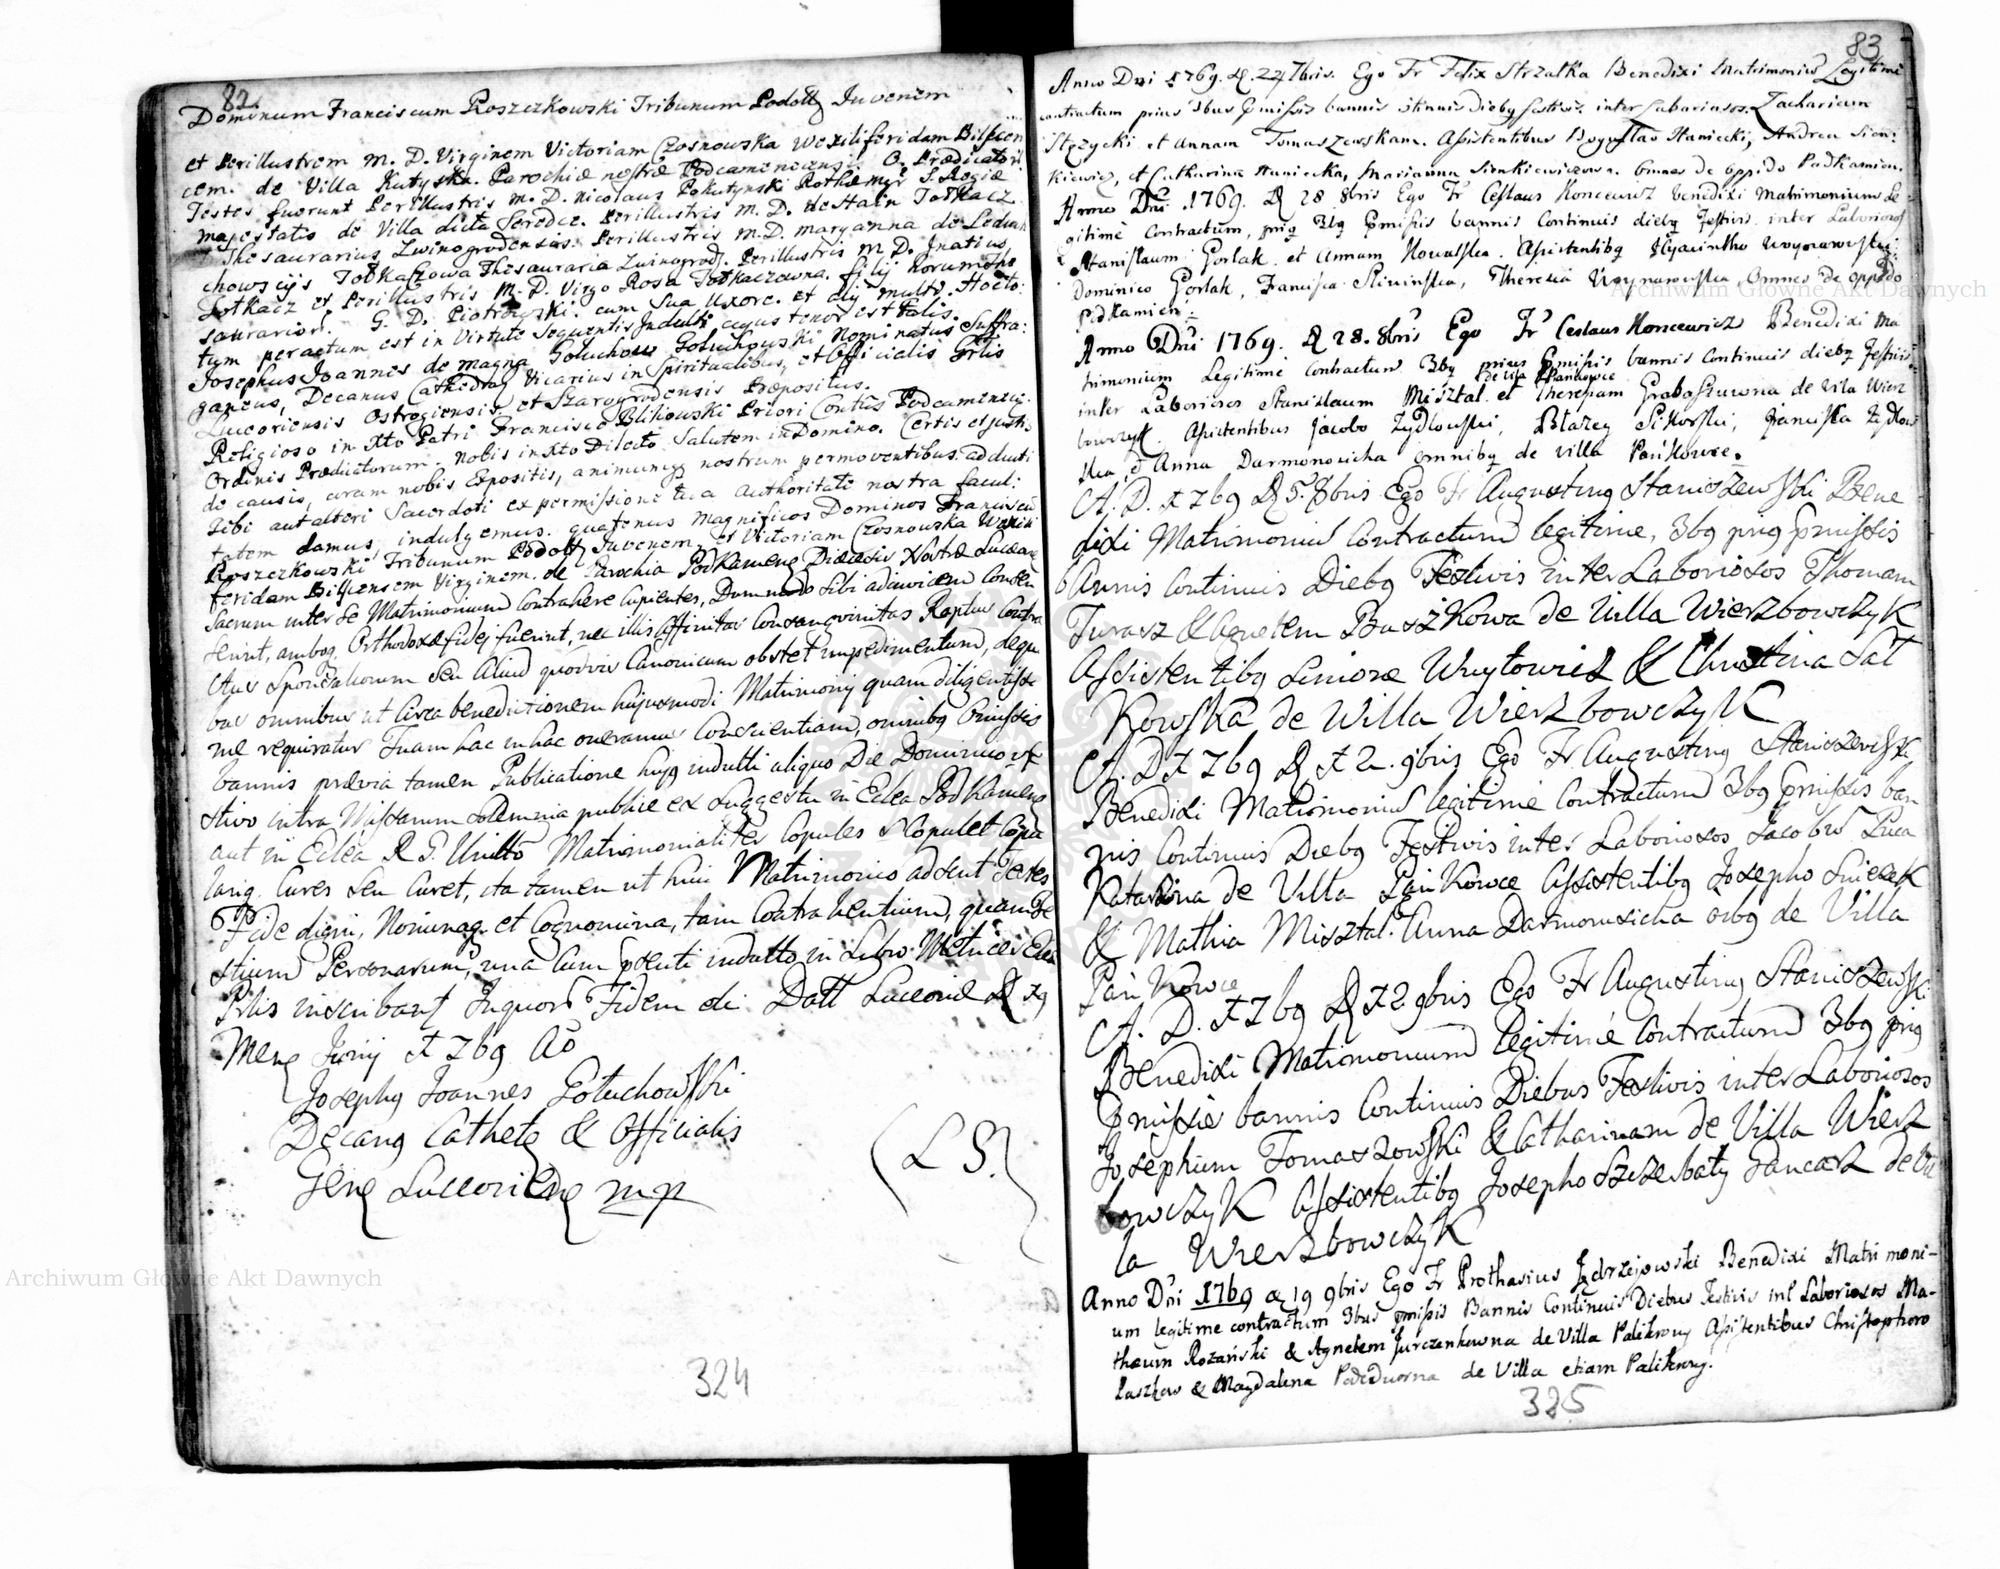 82.
Dominum Franciscum Roszczkowski Tribunum Podoll Juvenem
et Perillustrem M. D. Virginem Victoriam Czosnowska Wexiliferidam
cem. de Villa Kutyska. Parochiæ nostræ Podcamenecensis O. Prædicator
Testes fuerunt Perillustris M. D. Nicolaus Pokutynski S. Regiæ
Majestatis de Villa dicta Seredce. Perillustris M. D.
Thesaurarius Zwinogrodensis. Perillustris M. D. Maryanna de
Totkaczowa Thesauraria Zwinogrod. Perillustris M. D. Jnatius
Totkacz et Perillustris M. D. Virgo Rosa Totkaczewna. filij horum
saurarior. G. D. Piotrowski. cum sua Uxore. et alij multi. Hocto:
tum peractum est in Virtute Sequentis Jndulti cujus tenor est talis.
Josephus Joannes de magna Goluchow Goluchowski Nominatus Suffra:
ganeus, Decanus Cathedral Vicarius in Spiritualibus, et Officialis Gnlis
Luceoriensis Ostrogiensis et Szarogrodensis Præpositus.
Religioso in Xto Patri Francisco Blikowski Priori Contus Podcamenen:
Ordinis Prædicatorum. Nobis in Xto Dilecto Salutem in Domino. Certis et justis
de causis, coram nobis Expositis, animumq nostrum permoventibus. adducti
tibi aut alteri Sacerdoti ex permissione tua authoritate nostra facul:
tatem damus, indulgemus. quatenus Magnificos Dominos Franciscu
Roszczkowski Tribunum Podoll Juvenem, et Victoriam Czosnowska Wexili
feridam Virginem. de Parochia Podkamene Diæcesis Nostræ Luceor
Sacrum inter se Matrimonium Contrahere Cupientes, Dummodo sibi adinvicem Consen
serint, ambog Orthodoxæ fidej fuerint, nec illis Affinitas Consangvinitas Raptus Contra
ctus Sponsaliorum Seu Aliud quodvis Canonicum obstet impedimentum, dequi
bus omnibus ut Circa benedictionem hujusmodi Matrimonij quam diligentissi
me requiratur Tuam hac in hac oneramus Conscientiam, omnibg omissis
bannis prævia tamen Publicatione hujg indulti aliquo Die Dominico vel
stivo intra Missarum solemnia publice ex Suggestu in Eclea Podkamene
aut in Eclea R. G. Unito Matrimonialiter Copules
Cures Seu Curet, ita tamen ut huic Matrimonio adsint Testes
Fide digni, Nominaq et Cognomina, tam Contrahentium, quam Te
stium Personarum, una Cum psenti indulto in Libro Metrices Ecclæ
inscribant Jnquor Fidem Datt Luceoriæ D 19
Mens Junij A 1769 Ao
Josephg Joannes Goluchowski
Decang Cathets & Officialis
Gene Luceoriens mp
(L S.)
324
83
Anno Dni 1769. D. 24 7bris. Ego Fr Felix Strzałka Benedixi Matrimoniu Legitime
contractum prius 3bus pmissis bannis continuis diebg festivis inter Laboriosos Zachariam
Stęzycki et Annam Tomaszewskam. Assistentibus Boguslao Staniecki, Andrea Sien:
kiewicz, et Catharina Staniecka, Marianna Sienkiewiczowa. Omnes de oppido Podkamien.
Anno Dni 1769. D 28 8bris Ego Fr Ceslaus Koncewicz benedixi Matrimonium Le
gitime Contractum, prig 3bg pmissis bannis Continuis diebg festivis inter Laboriosos
Stanislaum Gorlak et Annam Kowalska. Assistentibg Hyacintho Woynarowski,
Dominico Gorlak, Francisca Sliwinska, Theresia Woynarowska, Omnes de oppido
Podkamien.
Anno Dni 1769. D 28. 8bris Ego Fr Ceslaus Koncewicz Benedixi Ma
trimonium Legitime Contractum 3bg prius pmissis bannis Continuis diebg festivis
de vila Pankowce
inter Laboriosos Stanislaum Misztal et Theresiam Grabaszuwna de Vila Wierz
bowczyk. Assistentibus Jacobo Zydlowski, Błazey Sikorski, Francisca Zydlow
ska, & Anna Darmonosicha omnibg de villa Pańkowce.
A. D. 1769 D 5. 8bris Ego Fr Augusting Staniszewski Bene
dixi Matrimoniu Contractum legitime, 3bg prig pmissis
Bannis Continuis Diebg Festivis inter Laboriosos Thomam
Turasz & Agnetem Buszkowa de Villa Wierzbowczyk
Assistentibg Simone Wuytowicz & Christina Sal
kowska de Willa Wierzbowczyk
A. D 1769 D 12. 9bris Ego Fr Augusting Staniszewski
Benedixi Matrimoniu legitime Contractum 3bg pmissis ban
nis Continuis Diebg Festivis inter Laboriosos Jacobu Puca
Katarzina de Villa Pańkowce Assistentibg Josepho Sniezek
& Mathia Misztal. Anna Darmonosicha oibg de Villa
Pańkowce
A. D. 1769 D 12 9bris Ego Fr Augusting Staniszewski
Benedixi Matrimonium legitime Contractum 3bg prig
pmissis bannis Continuis Diebus Festivis inter Laboriosos
Josephum Tomaszowski & Catharinam de Villa Wierz
bowczyk Assistentibg Josepho Szczerbaty Jancarz de Vil
la Wierzbowczyk
Anno Dni 1769 D 19 9bris Ego Fr Prothasius Jędrzejowski Benedixi Matrimoni-
um legitime contractum 3bus pmissis Bannis Continuis Diebus Festivis int Laboriosos Ma-
thæum Rozański & Agnetem Jurczenkowna de Villa Palikrowy Assistentibus Christophoro
Łaszkow & Magdalena Podduorna de Villa etiam Palikrowy.
325
Archiwum Główne Akt Dawnych
Archiwum Główne Akt Dawnych